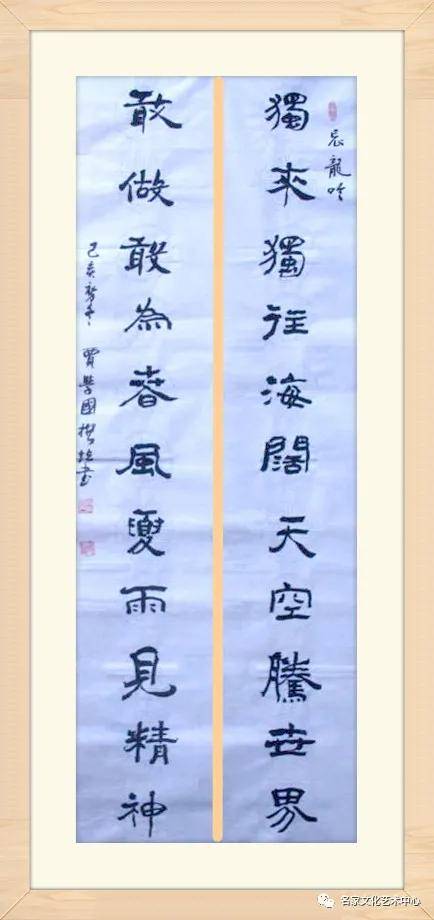 辰龍吟
獨來獨往海闊天空騰世界
敢做敢為春風夏雨見精神
己亥初冬 賈學國撰拙書
名家文化艺术中心